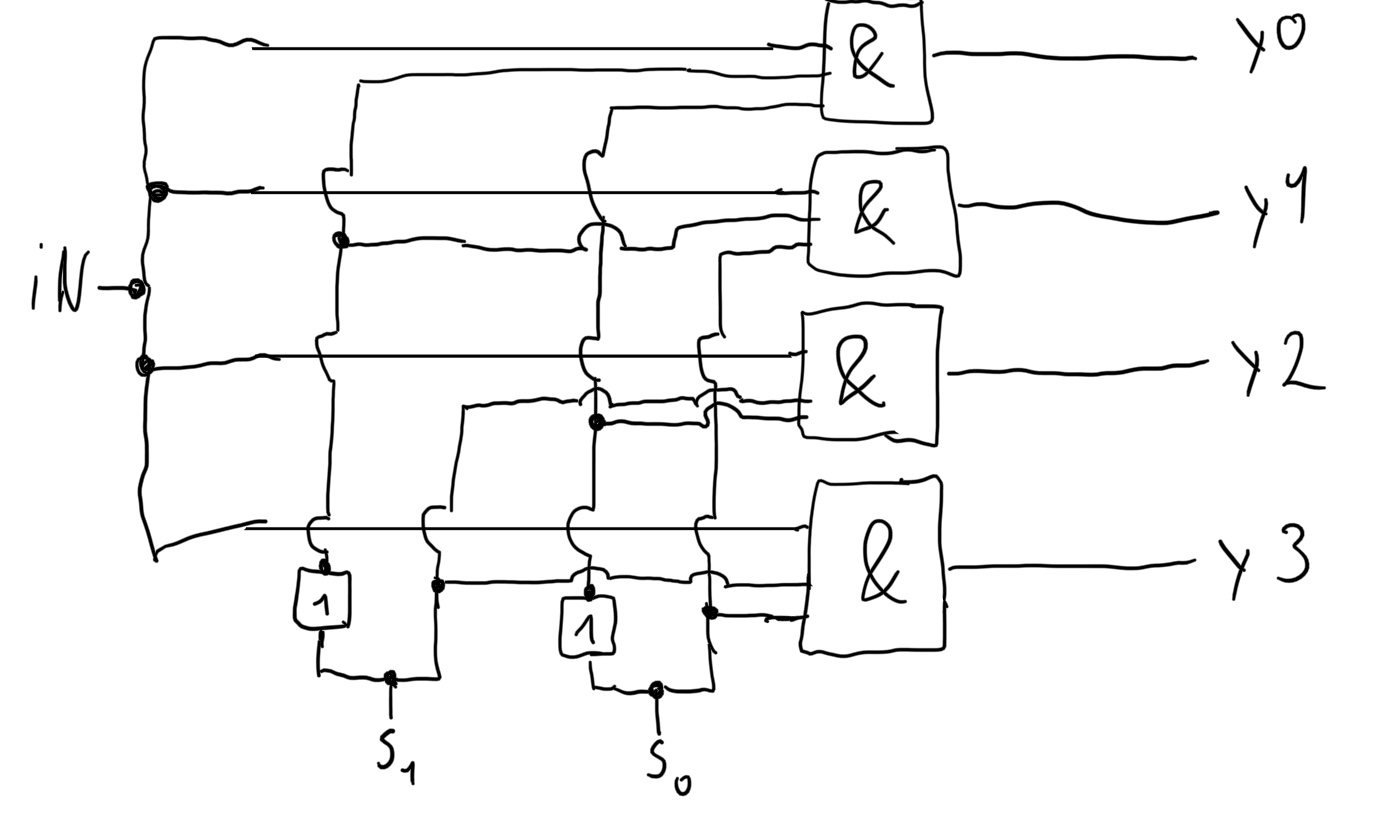 & y0
& y1
iN
& y2
& y3
1 1
S1 S0